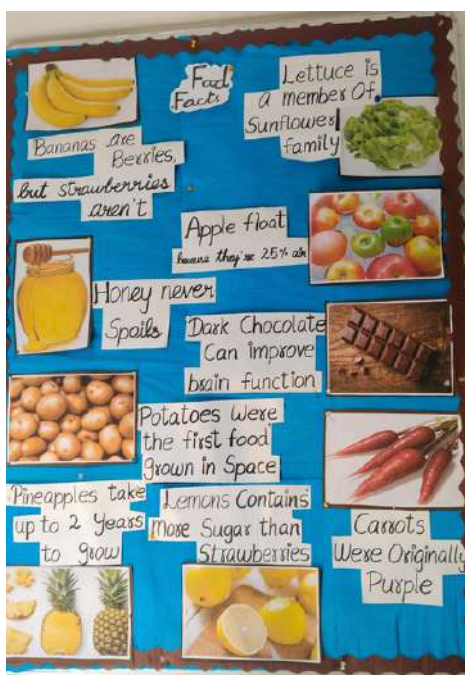 Food
Facts
Lettuce is
a member Of
Sunflower
family
Bananas are
Berries,
but strawberries
aren't
Apple float
because they're 25% air
Honey never
Spoils
Dark Chocolate
Can improve
brain function
Potatoes Were
the first food
grown in Space
Pineapples take
up to 2 Years
to grow
Lemons Contains
More Sugar than
Strawberries
Carrots
Were Originally
Purple